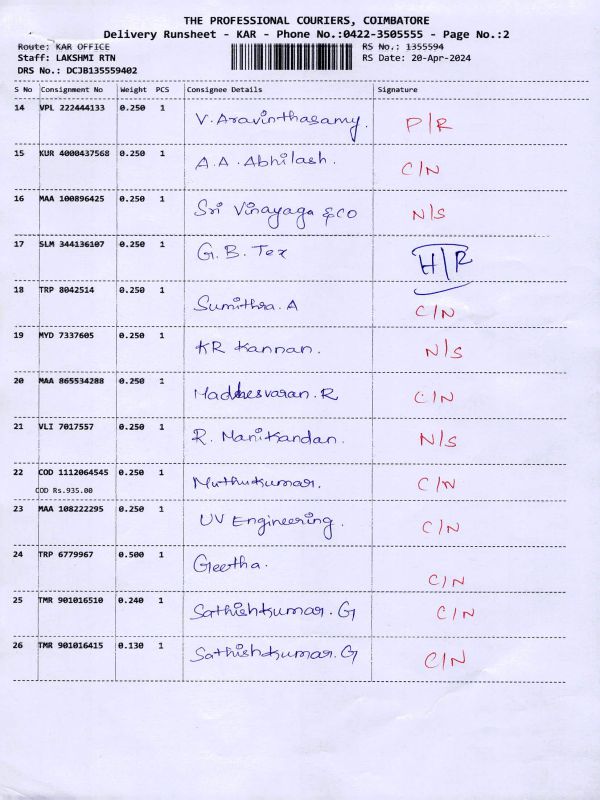 THE PROFESSIONAL COURIERS, COIMBATORE
Delivery Runsheet - KAR - Phone No.:0422-3505555 - Page No.:2
Route: KAR OFFICE RS No.: 1355594
Staff: LAKSHMI RTN RS Date: 20-Apr-2024
DRS No.: DCJB135559402
S No Consignment No Weight PCS Consignee Details Signature
14 VPL 222444133 0.250 1 V. Aravinthasamy. P/R
15 KUR 4000437568 0.250 1 A.A. Abhilash. C/N
16 MAA 100896425 0.250 1 Sri Vinayaga & CO N/S
17 SLM 344136107 0.250 1 G.B. Tex H/R
18 TRP 8042514 0.250 1 Sumithra. A C/N
19 MYD 7337605 0.250 1 KR Kannan. N/S
20 MAA 865534288 0.250 1 Madhesvaran. R C/N
21 VLI 7017557 0.250 1 R. Manikandan. N/S
22 COD 1112064545 0.250 1 Muthukumar. C/N
COD Rs.935.00
23 MAA 108222295 0.250 1 UV Engineering. C/N
24 TRP 6779967 0.500 1 Geetha. C/N
25 TMR 901016510 0.240 1 Sathishkumar. G C/N
26 TMR 901016415 0.130 1 Sathishkumar. G C/N